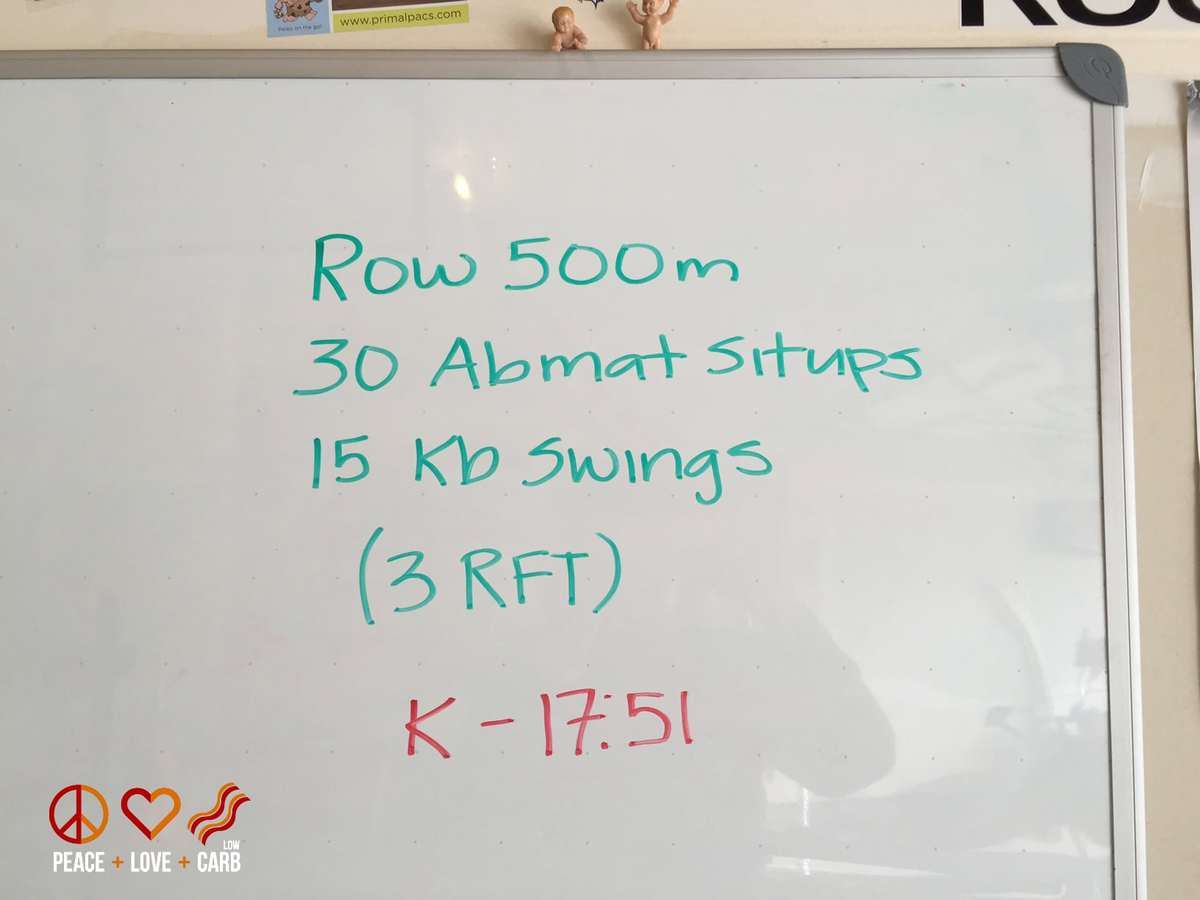 Paleo on the go!
www.primalpacs.com
Row 500m
30 Abmat Situps
15 Kb Swings
(3 RFT)
K - 17:51
LOW
PEACE + LOVE + CARB